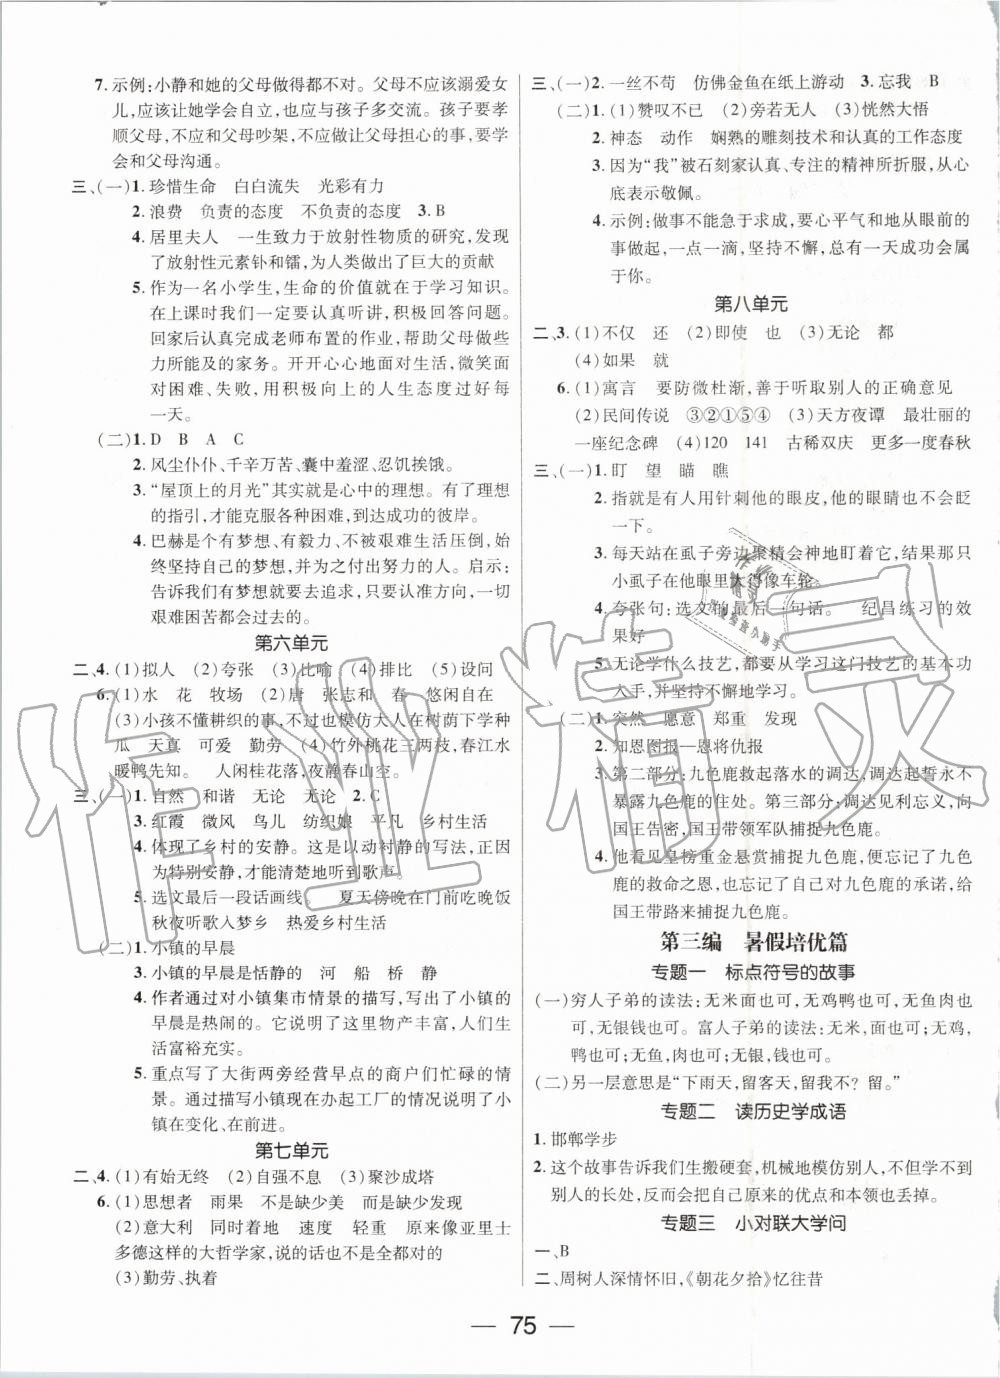 7. 示例:小静和她的父母做得都不对。父母不应该溺爱女
儿,应该让她学会自立,也应与孩子多交流。孩子要孝
顺父母,不应和父母吵架,不应做让父母担心的事,要学
会和父母沟通。
三、(一)1. 珍惜生命 白白流失 光彩有力
2. 浪费 负责的态度 不负责的态度 3. B
4. 居里夫人 一生致力于放射性物质的研究,发现
了放射性元素钋和镭,为人类做出了巨大的贡献
5. 作为一名小学生,生命的价值就在于学习知识。
在上课时我们一定要认真听讲,积极回答问题。
回家后认真完成老师布置的作业,帮助父母做些
力所能及的家务。开开心心地面对生活,微笑面
对困难、失败,用积极向上的人生态度过好每
一天。
(二)1. D B A C
2. 风尘仆仆、千辛万苦、囊中羞涩、忍饥挨饿。
3. “屋顶上的月光”其实就是心中的理想。有了理想
的指引,才能克服各种困难,到达成功的彼岸。
4. 巴赫是个有梦想、有毅力、不被艰难生活压倒,始
终坚持自己的梦想,并为之付出努力的人。启示:
告诉我们有梦想就要去追求,只要去努力,一切
艰难困苦都会过去的。
第六单元
二、4. (1)拟人 (2)夸张 (3)比喻 (4)排比 (5)设问
6. (1)水 花 牧场 (2)唐 张志和 春 悠闲自在
(3)小孩不懂耕织的事,不过也模仿大人在树荫下学种
瓜 天真 可爱 勤劳 (4)竹外桃花三两枝,春江水
暖鸭先知。 人闲桂花落,夜静春山空。
三、(一)1. 自然 和谐 无论 无论 2. C
3. 红霞 微风 鸟儿 纺织娘 平凡 乡村生活
4. 体现了乡村的安静。这是以动衬静的写法,正因
为特别安静,才能清楚地听到歌声。
5. 选文最后一段话画线 夏天傍晚在门前吃晚饭
秋夜听歌入梦乡 热爱乡村生活
(二)1. 小镇的早晨
2. 小镇的早晨是恬静的 河 船 桥 静
4. 作者通过对小镇集市情景的描写,写出了小镇的
早晨是热闹的。它说明了这里物产丰富,人们生
活富裕充实。
5. 重点写了大街两旁经营早点的商户们忙碌的情
景。通过描写小镇现在办起工厂的情景,说明了小
镇在变化、在前进。
第七单元
二、4. (1)有始无终 (2)自强不息 (3)聚沙成塔
6. (1)思想者 雨果 不是缺少美 而是缺少发现
(2)意大利 同时着地 速度 轻重 原来像亚里士
多德这样的大哲学家,说的话也不是全都对的
(3)勤劳、执着
三、(一)2. 一丝不苟 仿佛金鱼在纸上游动 3. 忘我 B
(二)1. (1)赞叹不已 (2)旁若无人 (3)恍然大悟
2. 神态 动作 娴熟的雕刻技术和认真的工作态度
3. 因为“我”被石刻家认真、专注的精神所折服,从心
底表示敬佩。
4. 示例:做事不能急于求成,要心平气和地从眼前的
事做起,一点一滴,坚持不懈,总有一天成功会属
于你。
第八单元
二、3. (1)不仅 还 (2)即使 也 (3)无论 都
(4)如果 就
6. (1)寓言 要防微杜渐,善于听取别人的正确意见
(2)民间传说 ③②①⑤④ (3)天方夜谭 最壮丽的
一座纪念碑 (4)120 141 古稀双庆 更多一度春秋
三、(一)1. 盯 望 瞄 瞧
2. 指就是有人用针刺他的眼皮,他的眼睛也不会眨
一下。
3. 每天站在虱子旁边聚精会神地盯着它,结果那只
小虱子在他眼里大得像车轮。
4. 夸张句:选文的最后一句话。 纪昌练习的效
果好
5. 无论学什么技艺,都要从学习这门技艺的基本功
入手,并坚持不懈地学习。
(二)1. 突然 愿意 郑重 发现
2. 知恩图报—恩将仇报
3. 第二部分:九色鹿救起落水的调达,调达起誓永不
暴露九色鹿的住处。第三部分:调达见利忘义,向
国王告密,国王带领军队捕捉九色鹿。
4. 他看见皇榜重金悬赏捕捉九色鹿,便忘记了九色
鹿的救命之恩,也忘记了自己对九色鹿的承诺,给
国王带路来捕捉九色鹿。
第三编 暑假培优篇
专题一 标点符号的故事
(一)穷人子弟的读法:无米面也可,无鸡鸭也可,无鱼肉也
可,无银钱也可。富人子弟的读法:无米,面也可;无鸡,
鸭也可;无鱼,肉也可;无银,钱也可。
(二)另一层意思是“下雨天,留客天,留我不? 留。”
专题二 读历史学成语
1. 邯郸学步
2. 这个故事告诉我们生搬硬套,机械地模仿别人,不但学不到
别人的长处,反而会把自己原来的优点和本领也丢掉。
专题三 小对联大学问
一、B
二、周树人深情怀旧,《朝花夕拾》忆往昔
— 75 —
作业精灵